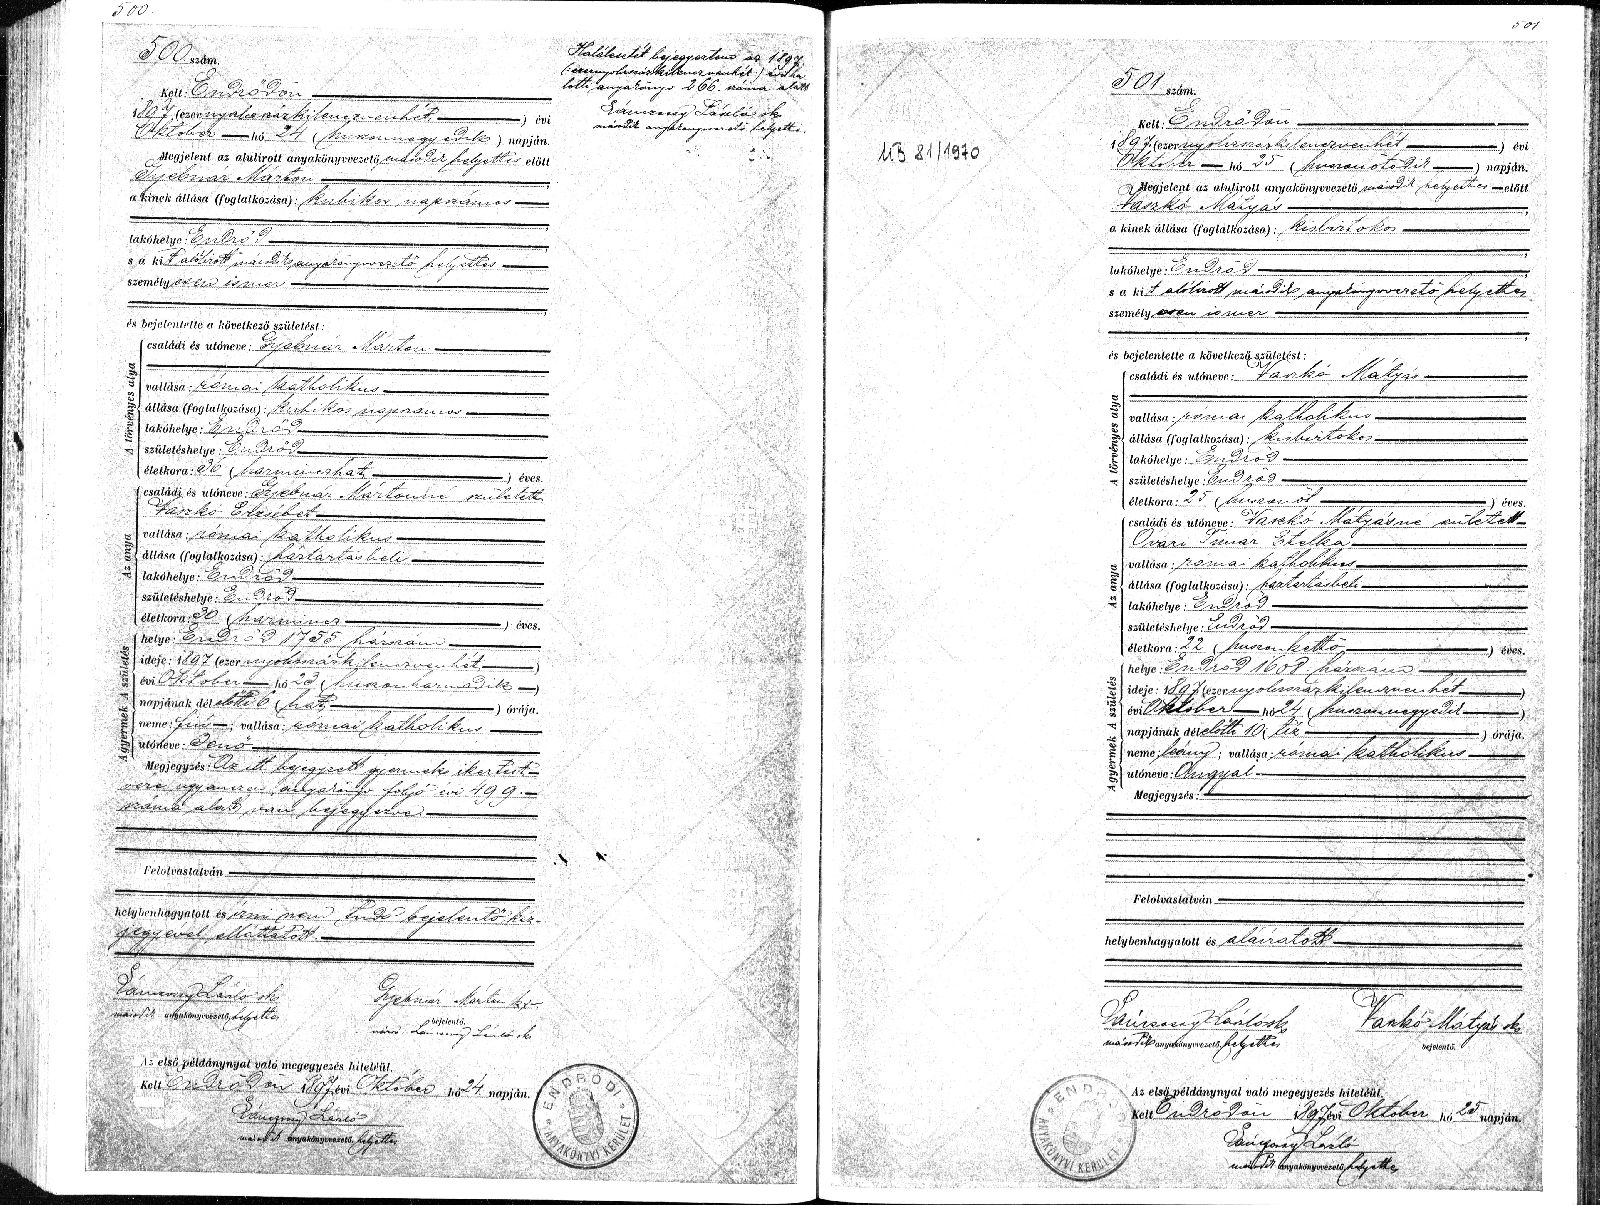 500
500 szám.
Kelt: Endrődön
1897 (ezernyolcszázkilenczvenhét) évi
Október hó 24 (huszonnegyedik) napján.
Megjelent az alulirott anyakönyvvezető második helyettes előtt
Gyebnár Márton
a kinek állása (foglalkozása): kubikos napszámos
lakóhelye: Endrőd
s a kit alólirott második anyakönyvvezető helyettes
személyesen ismer
és bejelentette a következő születést:
A törvényes atya
családi és utóneve: Gyebnár Márton
vallása: római katholikus
állása (foglalkozása): kubikos napszámos
lakóhelye: Endrőd
születéshelye: Endrőd
életkora: 36 (harminczhat) éves.
Az anya
családi és utóneve: Gyebnár Mártonné született
Vaszkó Erzsébet
vallása: római katholikus
állása (foglalkozása): háztartásbeli
lakóhelye: Endrőd
születéshelye: Endrőd
életkora: 30 (harmincz) éves.
A gyermek A születés
helye: Endrőd 1755 házszám
ideje: 1897 (ezernyolcszázkilenczvenhét)
évi Október hó 23 (huszonharmadik)
napjának délelőtti 6 (hat) órája.
neme: fiú; vallása: római katholikus
utóneve: Jenő
Megjegyzés: Az itt bejegyzett gyermek ikertest-
vére ugyanezen anyakönyv folyó évi 499.
száma alatt van bejegyezve.
Felolvastatván
helybenhagyatott és írni nem tudó bejelentő kéz-
jegyével elláttatott.
Lánczossy László sk
második anyakönyvvezető helyettes
Gyebnár Márton
bejelentő.
Az első példánynyal való megegyezés hiteléül.
Kelt Endrődön 1897 évi Október hó 24 napján.
második anyakönyvvezető helyettes
ENDRŐDI ANYAKÖNYVI KERÜLET
Halálesetét bejegyeztem az 1897
(ezernyolcszázkilenczvenhét) évi ha-
lotti anyakönyv 266. száma alatt
Lánczossy László sk
második anyakönyvvezető helyettes
501
UB 81/1970
501 szám.
Kelt: Endrődön
1897 (ezernyolcszázkilenczvenhét) évi
Október hó 25 (huszonötödik) napján.
Megjelent az alulirott anyakönyvvezető második helyettes előtt
Vaszkó Mátyás
a kinek állása (foglalkozása): kisbirtokos
lakóhelye: Endrőd
s a kit alólirott második anyakönyvvezető helyettes
személyesen ismer
és bejelentette a következő születést:
A törvényes atya
családi és utóneve: Vaszkó Mátyás
vallása: római katholikus
állása (foglalkozása): kisbirtokos
lakóhelye: Endrőd
születéshelye: Endrőd
életkora: 25 (huszonöt) éves.
Az anya
családi és utóneve: Vaszkó Mátyásné született
Etelka
vallása: római katholikus
állása (foglalkozása): háztartásbeli
lakóhelye: Endrőd
születéshelye: Endrőd
életkora: 22 (huszonkettő) éves.
A gyermek A születés
helye: Endrőd 1608 házszám
ideje: 1897 (ezernyolcszázkilenczvenhét)
évi Október hó 24 (huszonnegyedik)
napjának délelőtti 10 (tíz) órája.
neme: leány; vallása: római katholikus
utóneve: Angyal
Megjegyzés:
Felolvastatván
helybenhagyatott és aláíratott
Lánczossy László sk
második anyakönyvvezető helyettes
Vaszkó Mátyás sk
bejelentő.
Az első példánynyal való megegyezés hiteléül.
Kelt Endrődön 1897 évi Október hó 25 napján.
Lánczossy László
második anyakönyvvezető helyettes
ENDRŐDI ANYAKÖNYVI KERÜLET